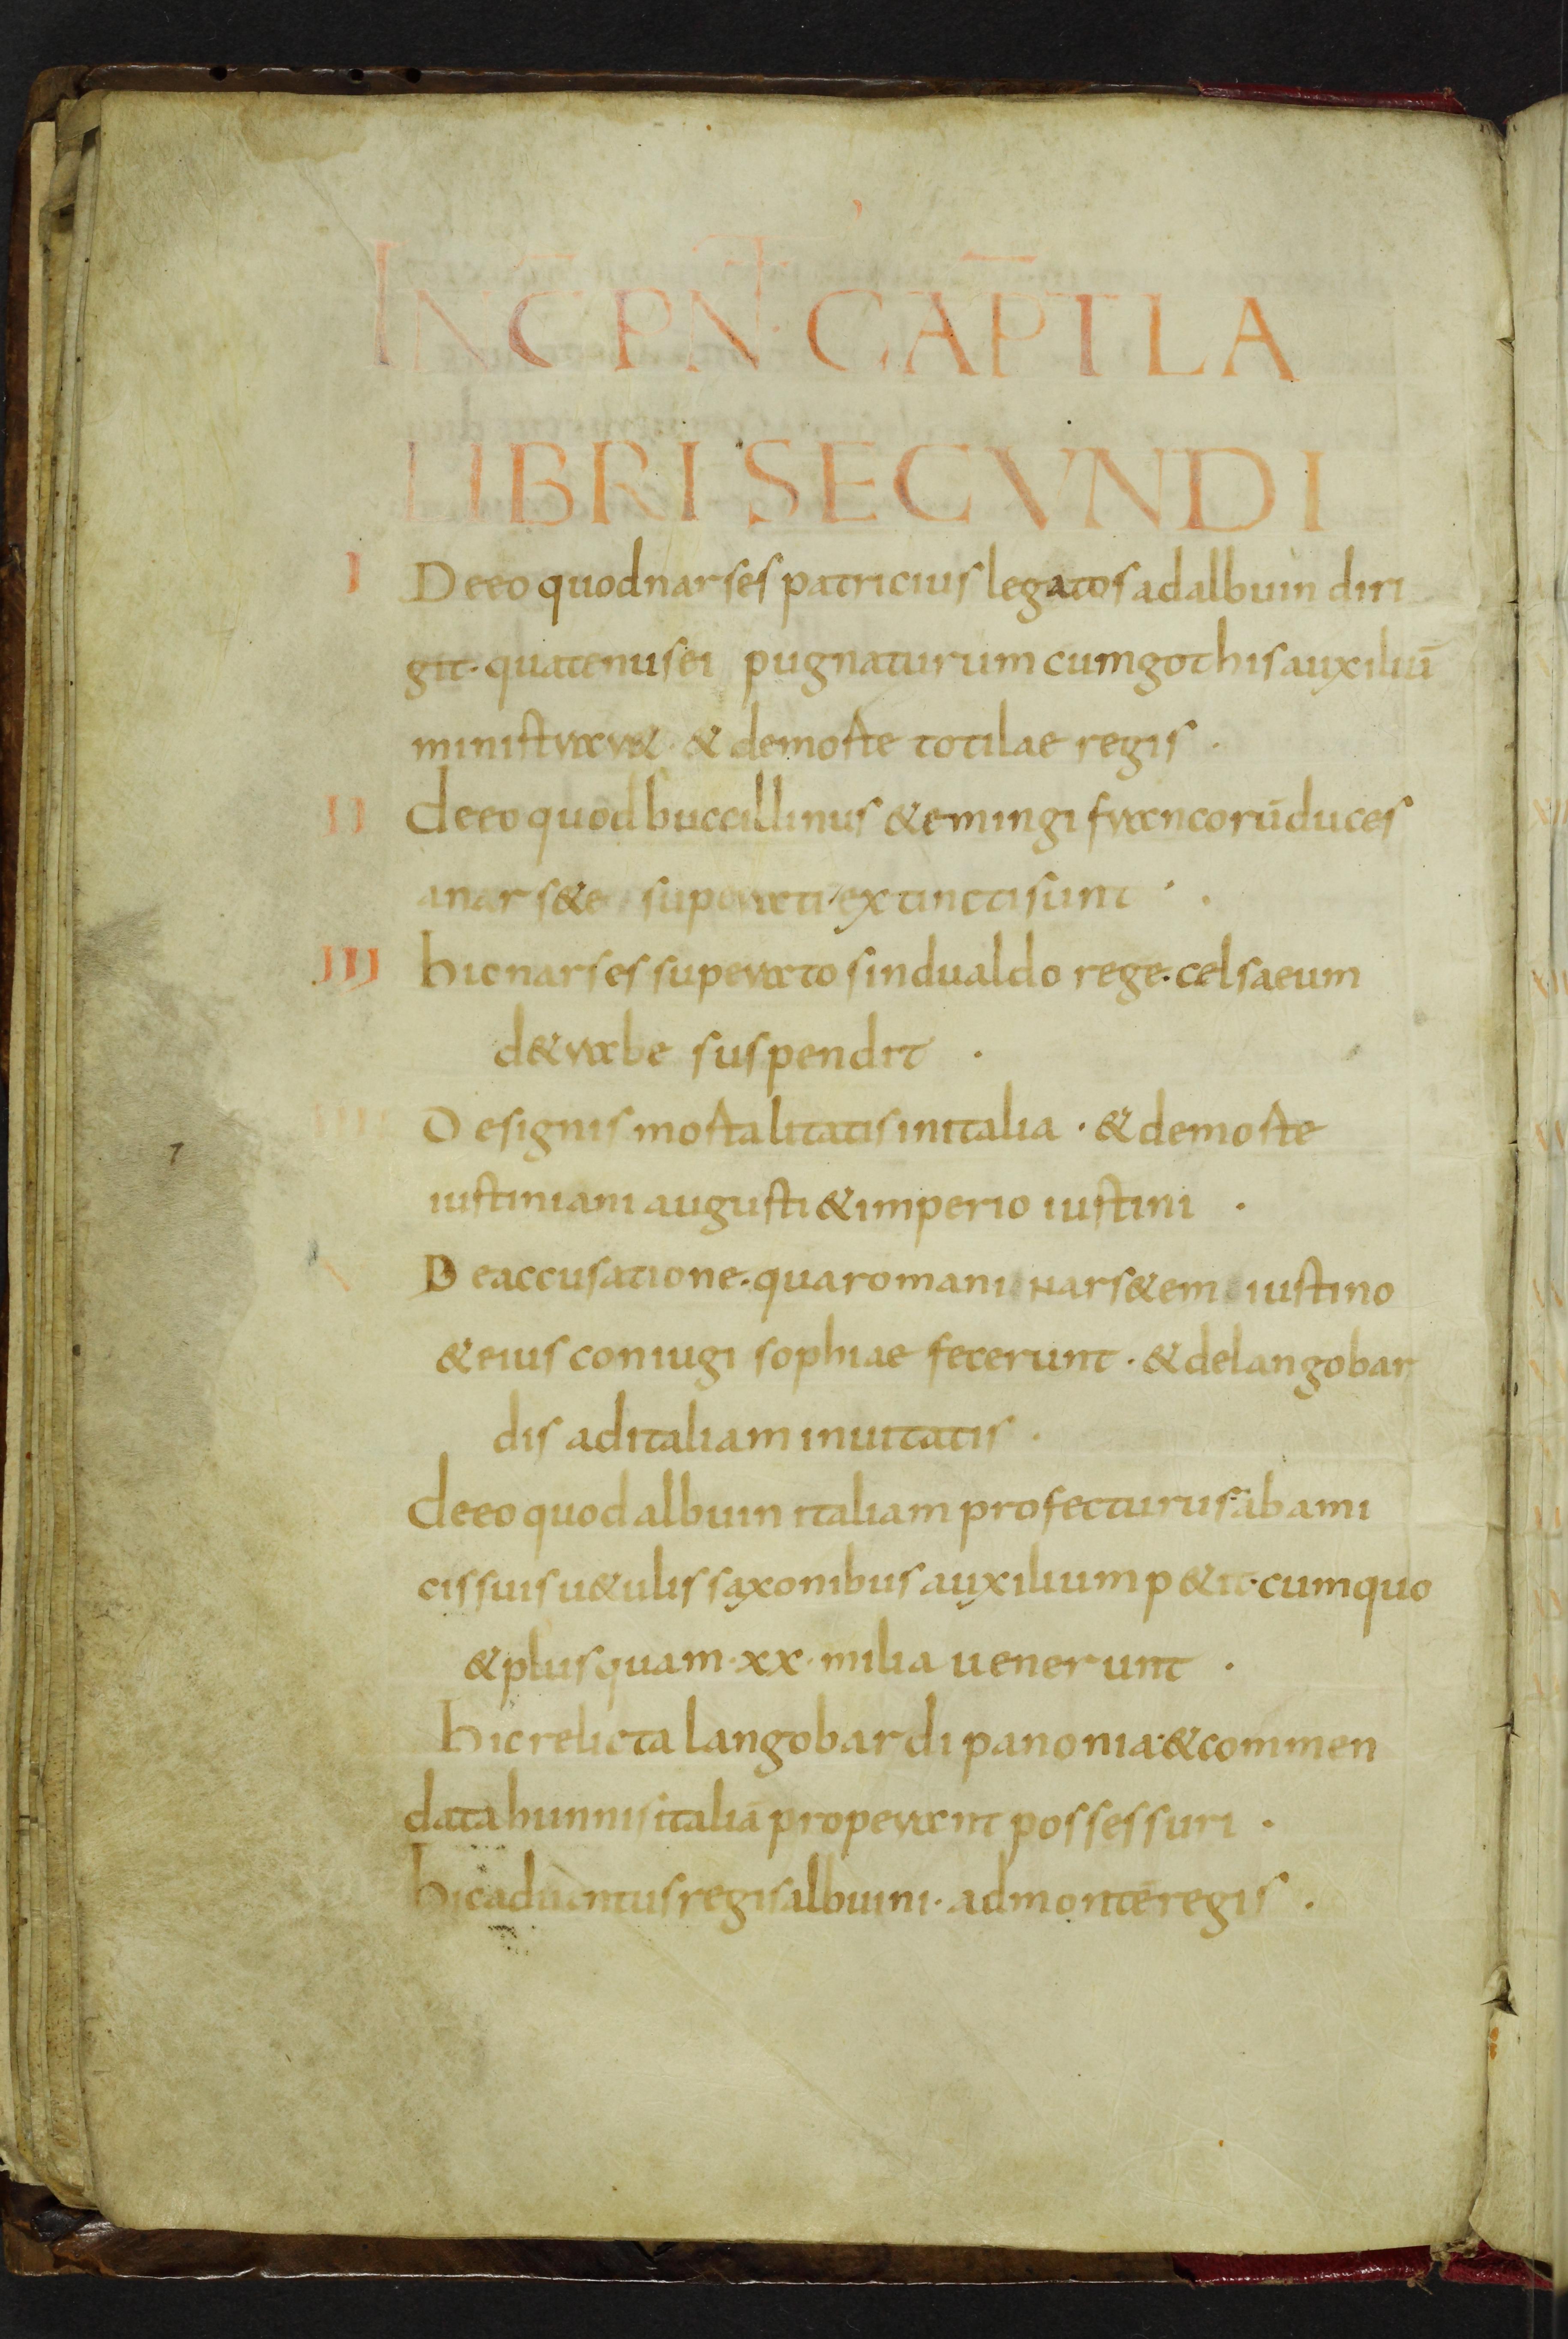 INC̄PN̄T CAP̄TLA
LIBRI SECVNDI
I De eo quod narses patricius legatos ad albuin diri
git · quatenus ei pugnaturum cum gothis auxiliū
ministraret · & de morte totilae regis ·
II de eo quod buccillinus & emingi francorū duces
a narsete superati extincti sunt ·
III hic narses superato sindualdo rege · celsa eum
de trabe suspendit ·
IIII De signis mortalitatis in italia · & de morte
iustiniani augusti & imperio iustini ·
De accusatione · qua romani narsetem iustino
& eius coniugi sophiae fecerunt · & de langobar
dis ad italiam inuitatis ·
de eo quod albuin italiam profecturus ab ami
cis suis uetulis saxonibus auxilium petit · cum quo
& plus quam · xx · milia uenerunt ·
hic relicta langobardi panonia · & commen
data hunnis italiā properant possessuri ·
hic aduentus regis albuini · ad montē regis ·